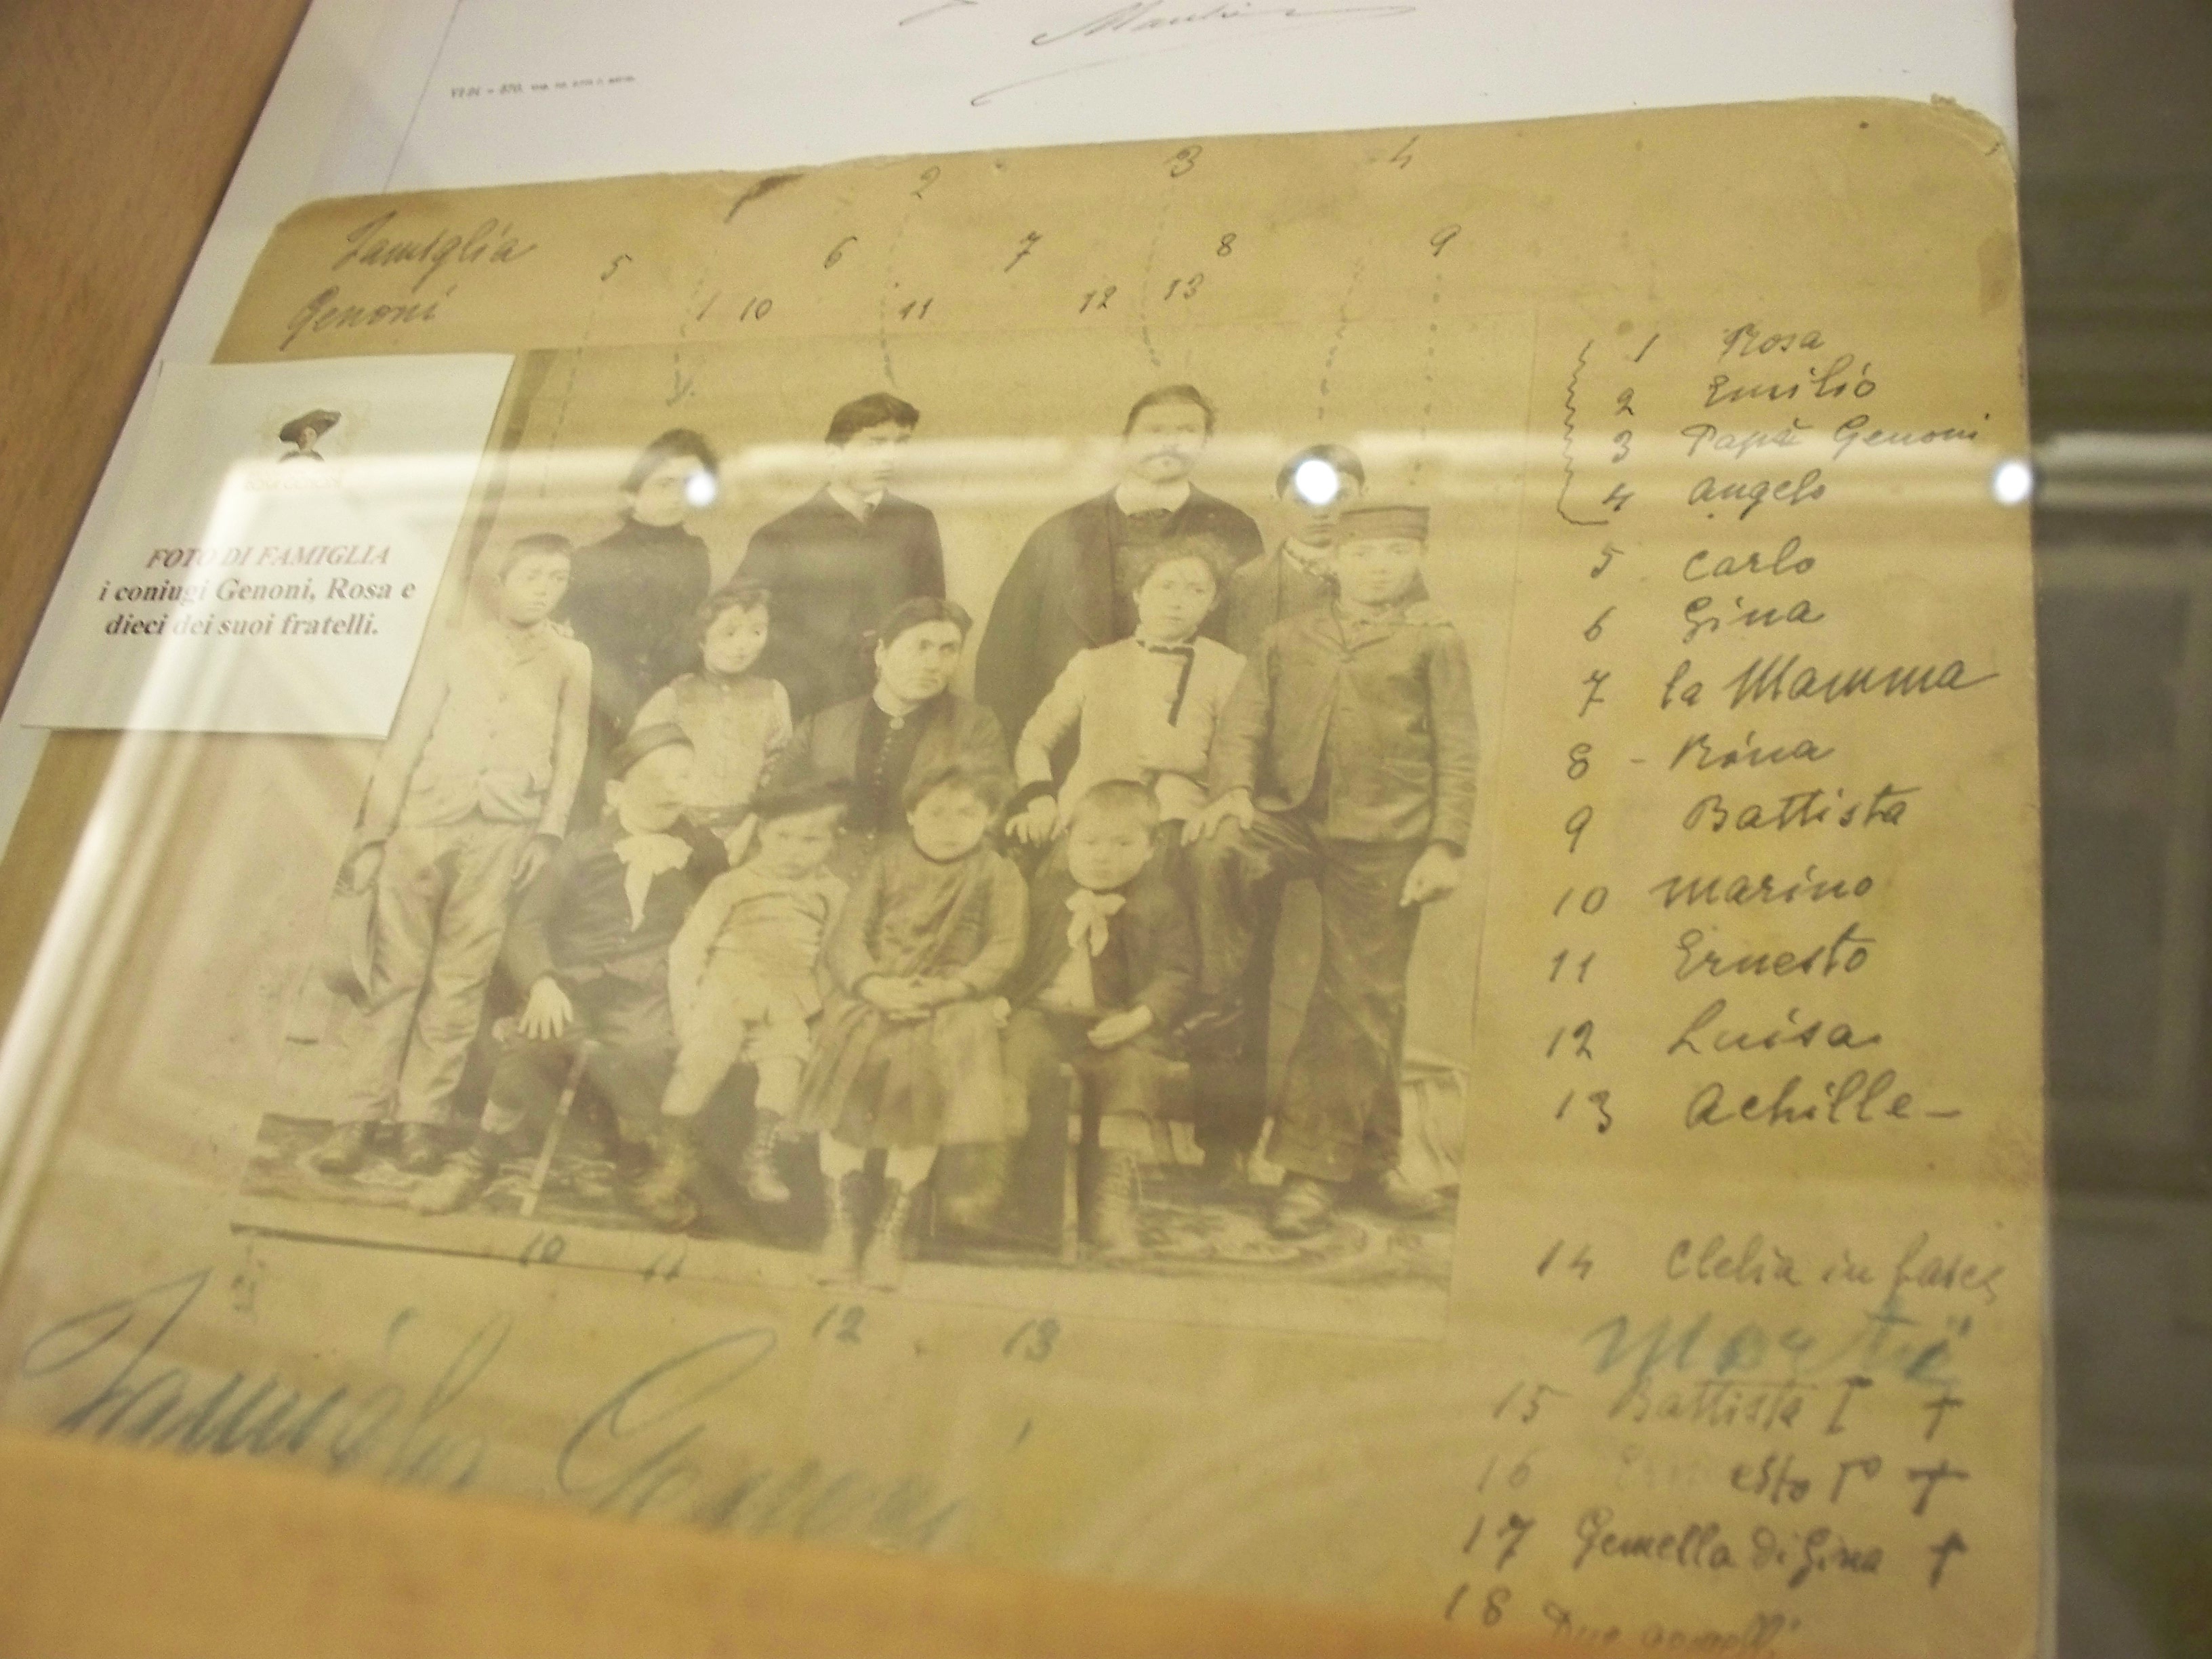 2 3 4
Famiglia 5 6 7 8 9
Genoni 1 10 11 12 13
FOTO DI FAMIGLIA
i coniugi Genoni, Rosa e
dieci dei suoi fratelli.
1 Rosa
2 Emilio
3 Papà Genoni
4 Angelo
5 Carlo
6 Gina
7 la Mamma
8 - Rina
9 Battista
10 Marino
11 Ernesto
12 Luisa
13 Achille -
14 Clelia in fasce
Morti
15 Battista I †
16 †
17 Gemella di Gina †
18 Due gemelli
10 11
12 13
Famiglia Genoni